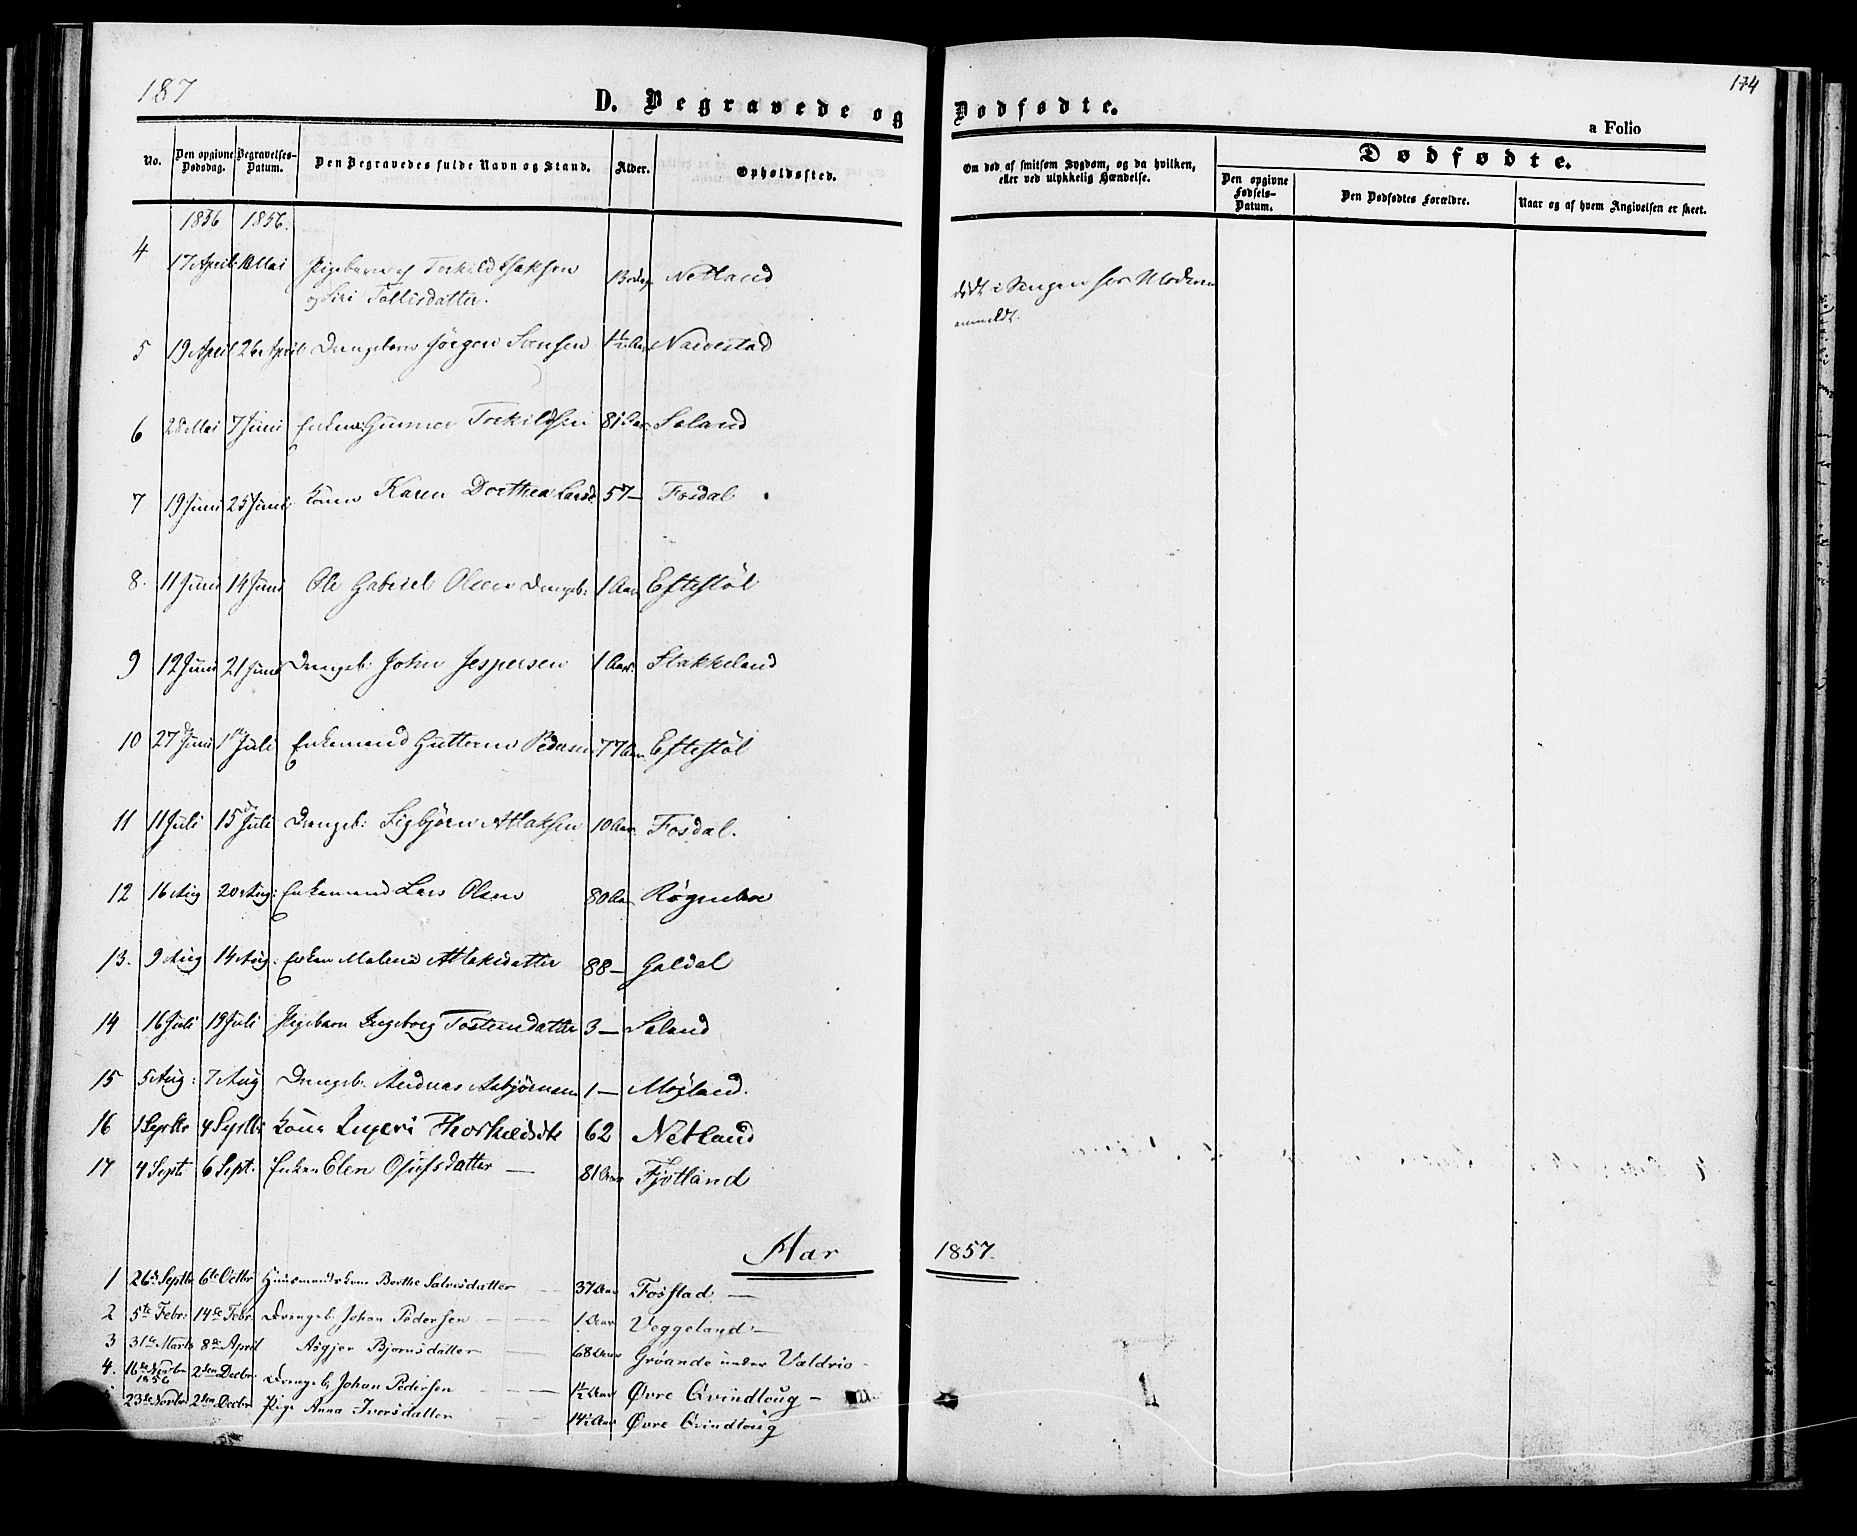 187
174
D. Begravede og Dødfødte.
a Folio
No.
Den opgivne Dødsdag.
Begravelses-Datum.
Den Begravedes fulde Navn og Stand.
Alder.
Opholdssted.
Om død af smitsom Sygdom, og da hvilken, eller ved ulykkelig Hændelse.
Dødfødte.
Den opgivne Fødsels-Datum.
Den Dødfødtes Forældre.
Naar og af hvem Angivelsen er skeet.
1856 1856.
4 17 April Mai Pigebarn af Torkild Isaksen Netland
og Siri Tollisdatter.
dødt i Sengen hos Moderen
anmeldt.
5 19 April 26 April Drengebarn Jørgen Sørensen 1½ Aar Narvestad
6 28 Mai 7 Juni Enkem: Gunner Torkildsen 81 Aar Saland
7 19 Juni 25 Juni Kone Karen Dorthea Larsd 57 — Fosdal
8. 11 Juni 14 Juni Ole Gabriel Olsen Drengeb: 1 Aar Eftestøl
9 12 Juni 21 Juni Drengeb: John Jespersen 1 Aar. Stakkeland
10 27 Juni 1 Juli Enkemand Guttorm Pedersen 77 Aar Eftestøl
11 11 Juli 15 Juli Drengeb: Sigbjørn Atlaksen 10 Aar. Fosdal.
12 16 Aug 20 Aug: Enkemand Lars Olsen 80 Aar Røgnebær
13. 9 Aug 14 Aug: Enken Malene Atlaksdatter 88 — Galdal
14 16 Juli 19 Juli Pigebarn Ingeborg Tosteinsdatter 3 — Saland
15 5 Aug: 7 Aug Drengeb: Andreas Asbjørnsen 1 — Mojland.
16 1 Septbr 4 Septbr Kone Ingeri Thorkildsdtr 62 Netland
17 4 Sept 6 Sept. Enken Elen Osufsdatter — 81 Aar Fjotland
Aar 1857.
1 26de Septbr 6te Octbr Huusmandskone Berthe Salvesdatter 37 Aar Fosstad —
2 5te Febr: 14de Febr Drengeb: Johan Pedersen 1 Aar Veggeland —
3 31te Marts 8de April Asgjer Bjørnsdatter 68 Aar Grøande under Valdrio
4. 16de Novbr 1856 2den Decbr Drengeb: Johan Pedersen 1½ Aar Øvre Qvindloug —
23de Novbr 2den Decbr Pige Anna Iversdatter 14½ Aar Øvre Qvindloug